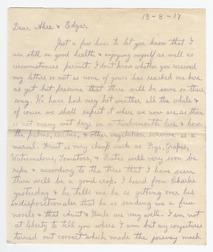 18-8-17
Dear Alice & Edgar,
Just a few lines to let you know that I
am still in good health & enjoying myself as well as
circumstances permit. I don't know whether you received
my letters or not as none of yours has reached me here
as yet but presume that there will be some on their
way. We have had very hot weather all the while &
of course we shall expect it where we now are as there
is not many wet days
the
natural. Fruit is very cheap such as Figs, Grapes,
Watermelons, Tomatoes, & Dates will very soon be
ripe & according to the trees that I have seen
there will be a good crop. I heard from Charlie
yesterday & he tells me he is getting over his
indisposition also that he is sending me a few
novels & that Aunt & Uncle are very well. I am not
at liberty to tell you where I am but my conjecture
turned out correct which made the journey much